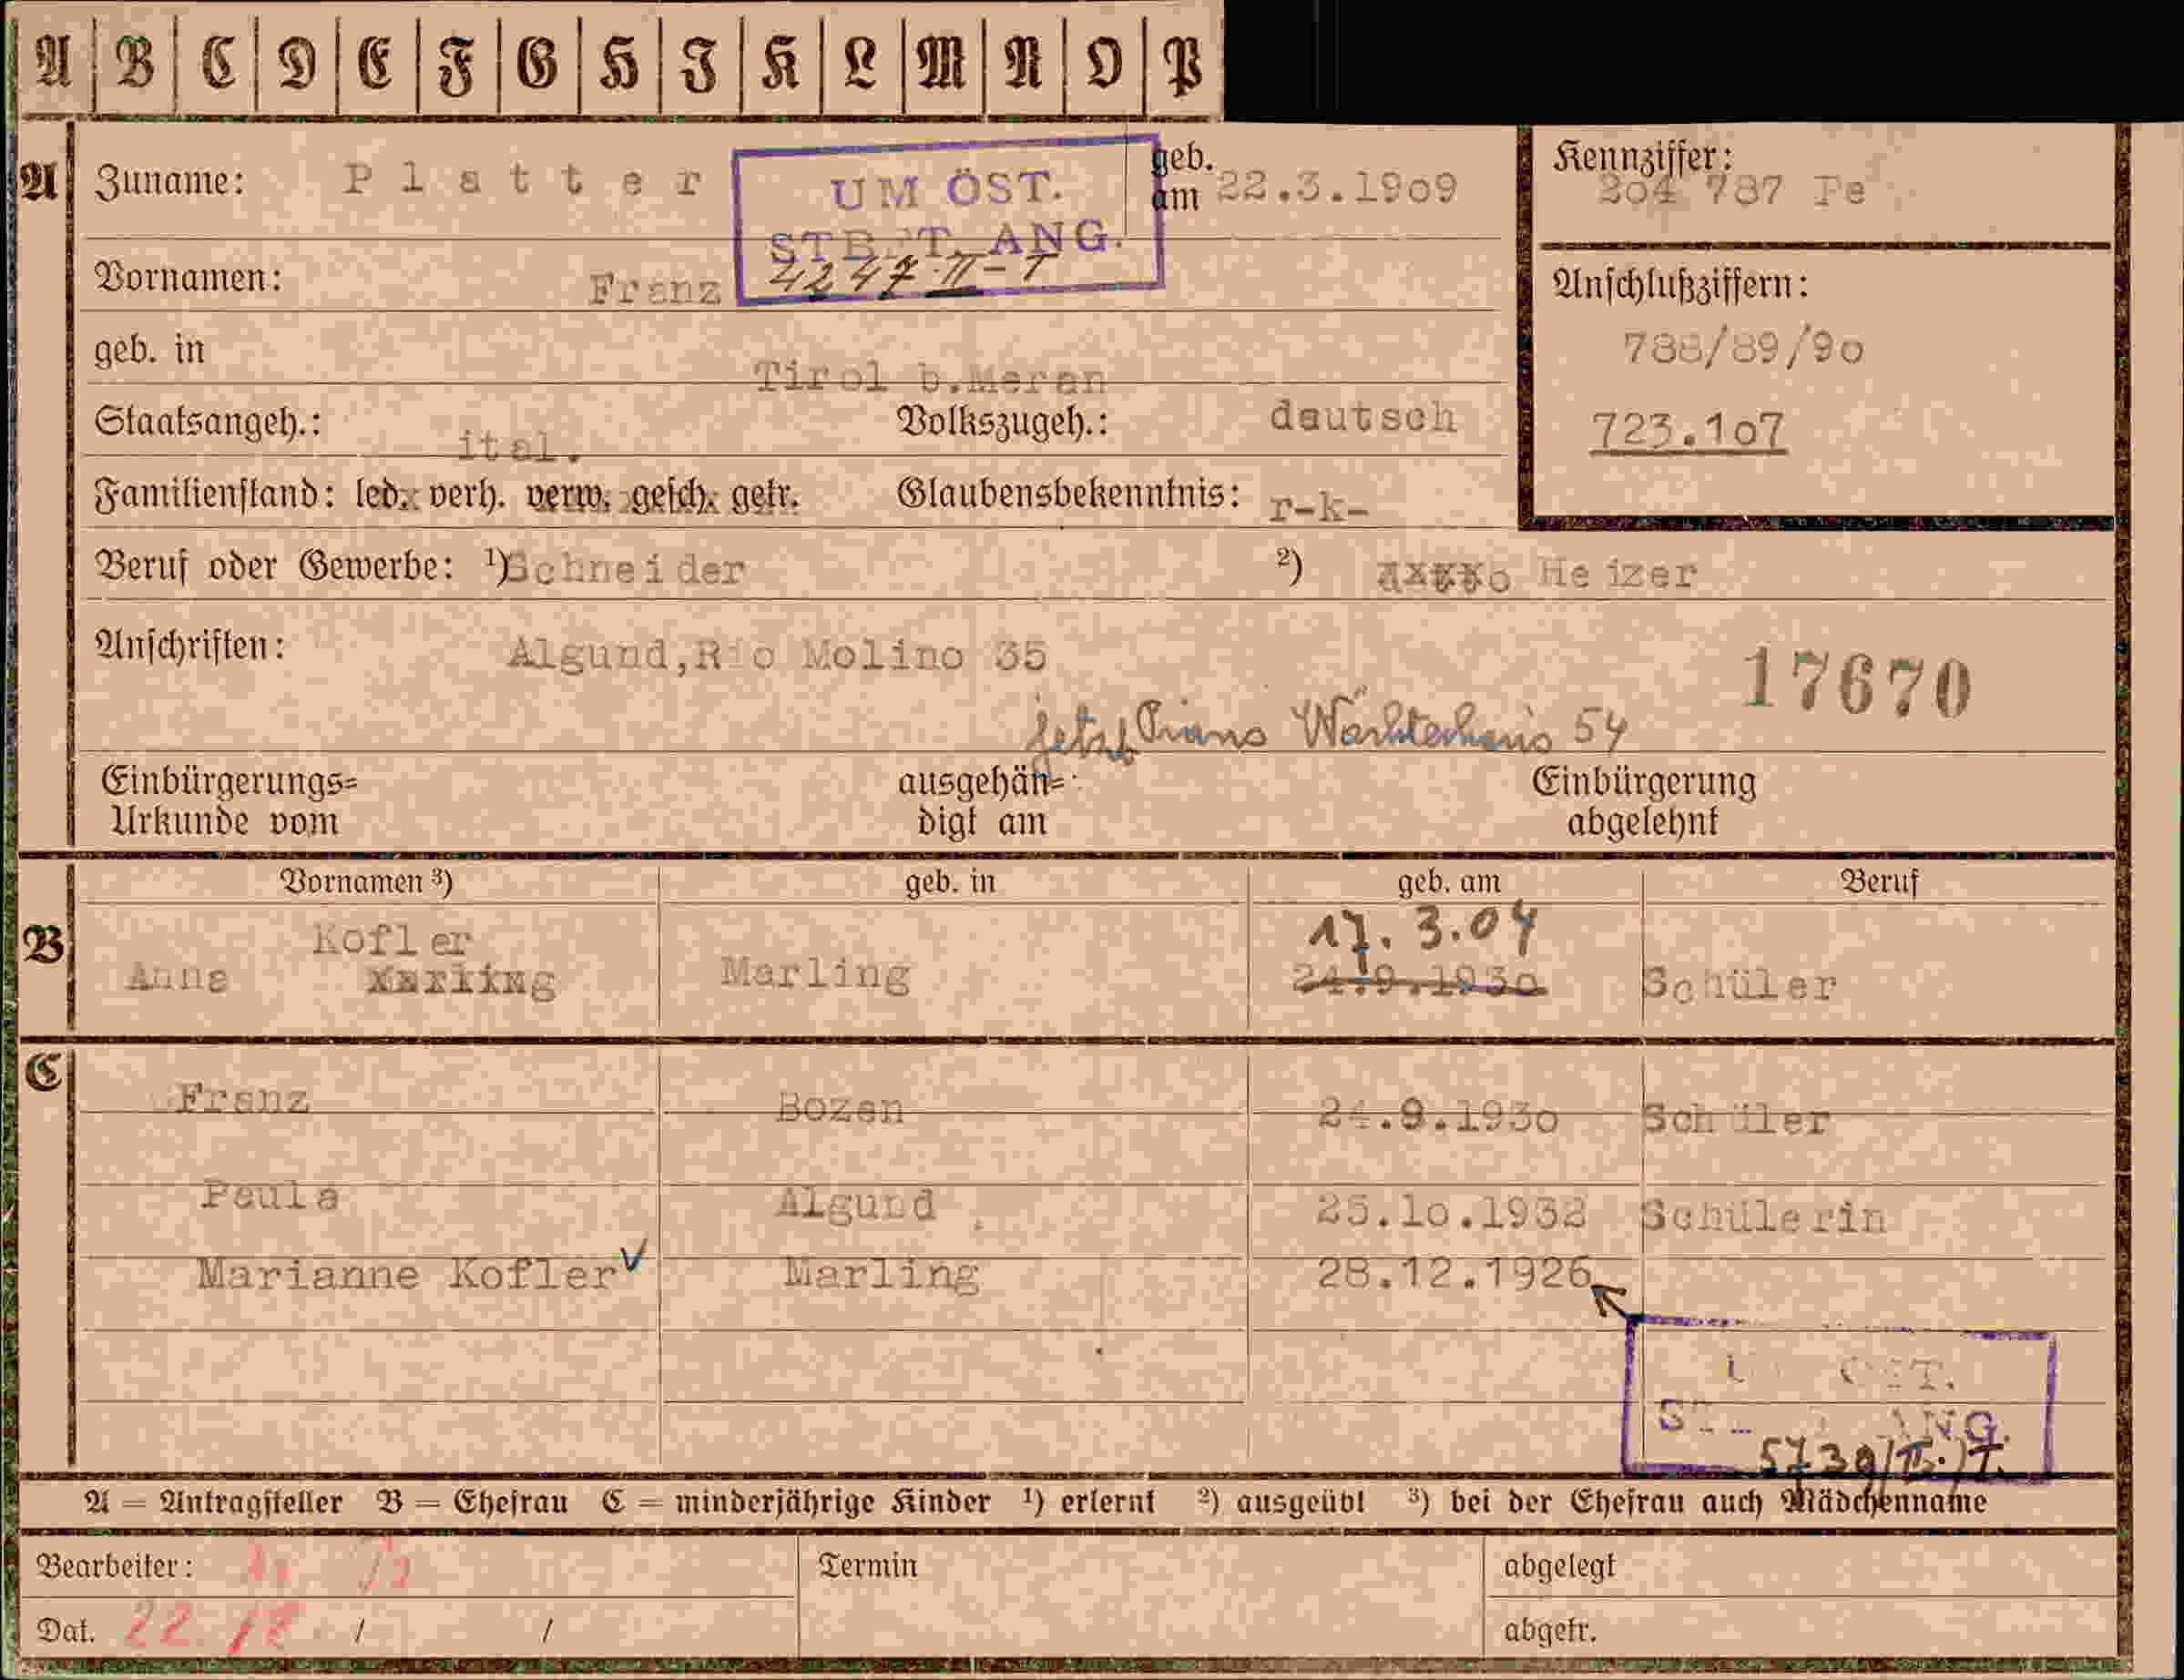 A B C D E F G H I K L M N O P
A Zuname: Platter geb. am 22.3.1909 Kennziffer: 204 787 Pe
UM ÖST.
ST ANG.
4247 II-T
Vornamen: Franz
Anschlußziffern:
788/89/90
723.107
geb. in Tirol b.Meran
Staatsangeh.: ital. Volkszugeh.: deutsch
Familienstand: led. verh. verw. gesch. getr. Glaubensbekenntnis: r-k-
Beruf oder Gewerbe: 1) Schneider 2) Heizer
Anschriften: Algund, Rio Molino 35
17670
jetzt Wächterhaus 54
Einbürgerungs=
Urkunde vom
ausgehän=
digt am
Einbürgerung
abgelehnt
Vornamen 3) geb. in geb. am Beruf
B Kofler 17. 3.04
Anna Marling Marling 24.9.1930 Schüler
C Franz Bozen 24.9.1930 Schüler
Paula Algund 25.10.1932 Schülerin
Marianne Kofler Marling 28.12.1926
ANG.
A = Antragsteller B = Ehefrau C = minderjährige Kinder 1) erlernt 2) ausgeübt 3) bei der Ehefrau auch Mädchenname
Bearbeiter: Termin abgelegt
Dat. 22. 12. / / abgetr.